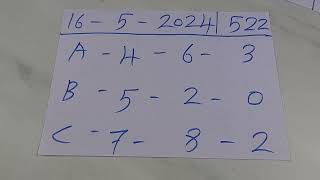 16 - 5 - 2024 | 522
A - 4 - 6 - 3
B - 5 - 2 - 0
C - 7 - 8 - 2